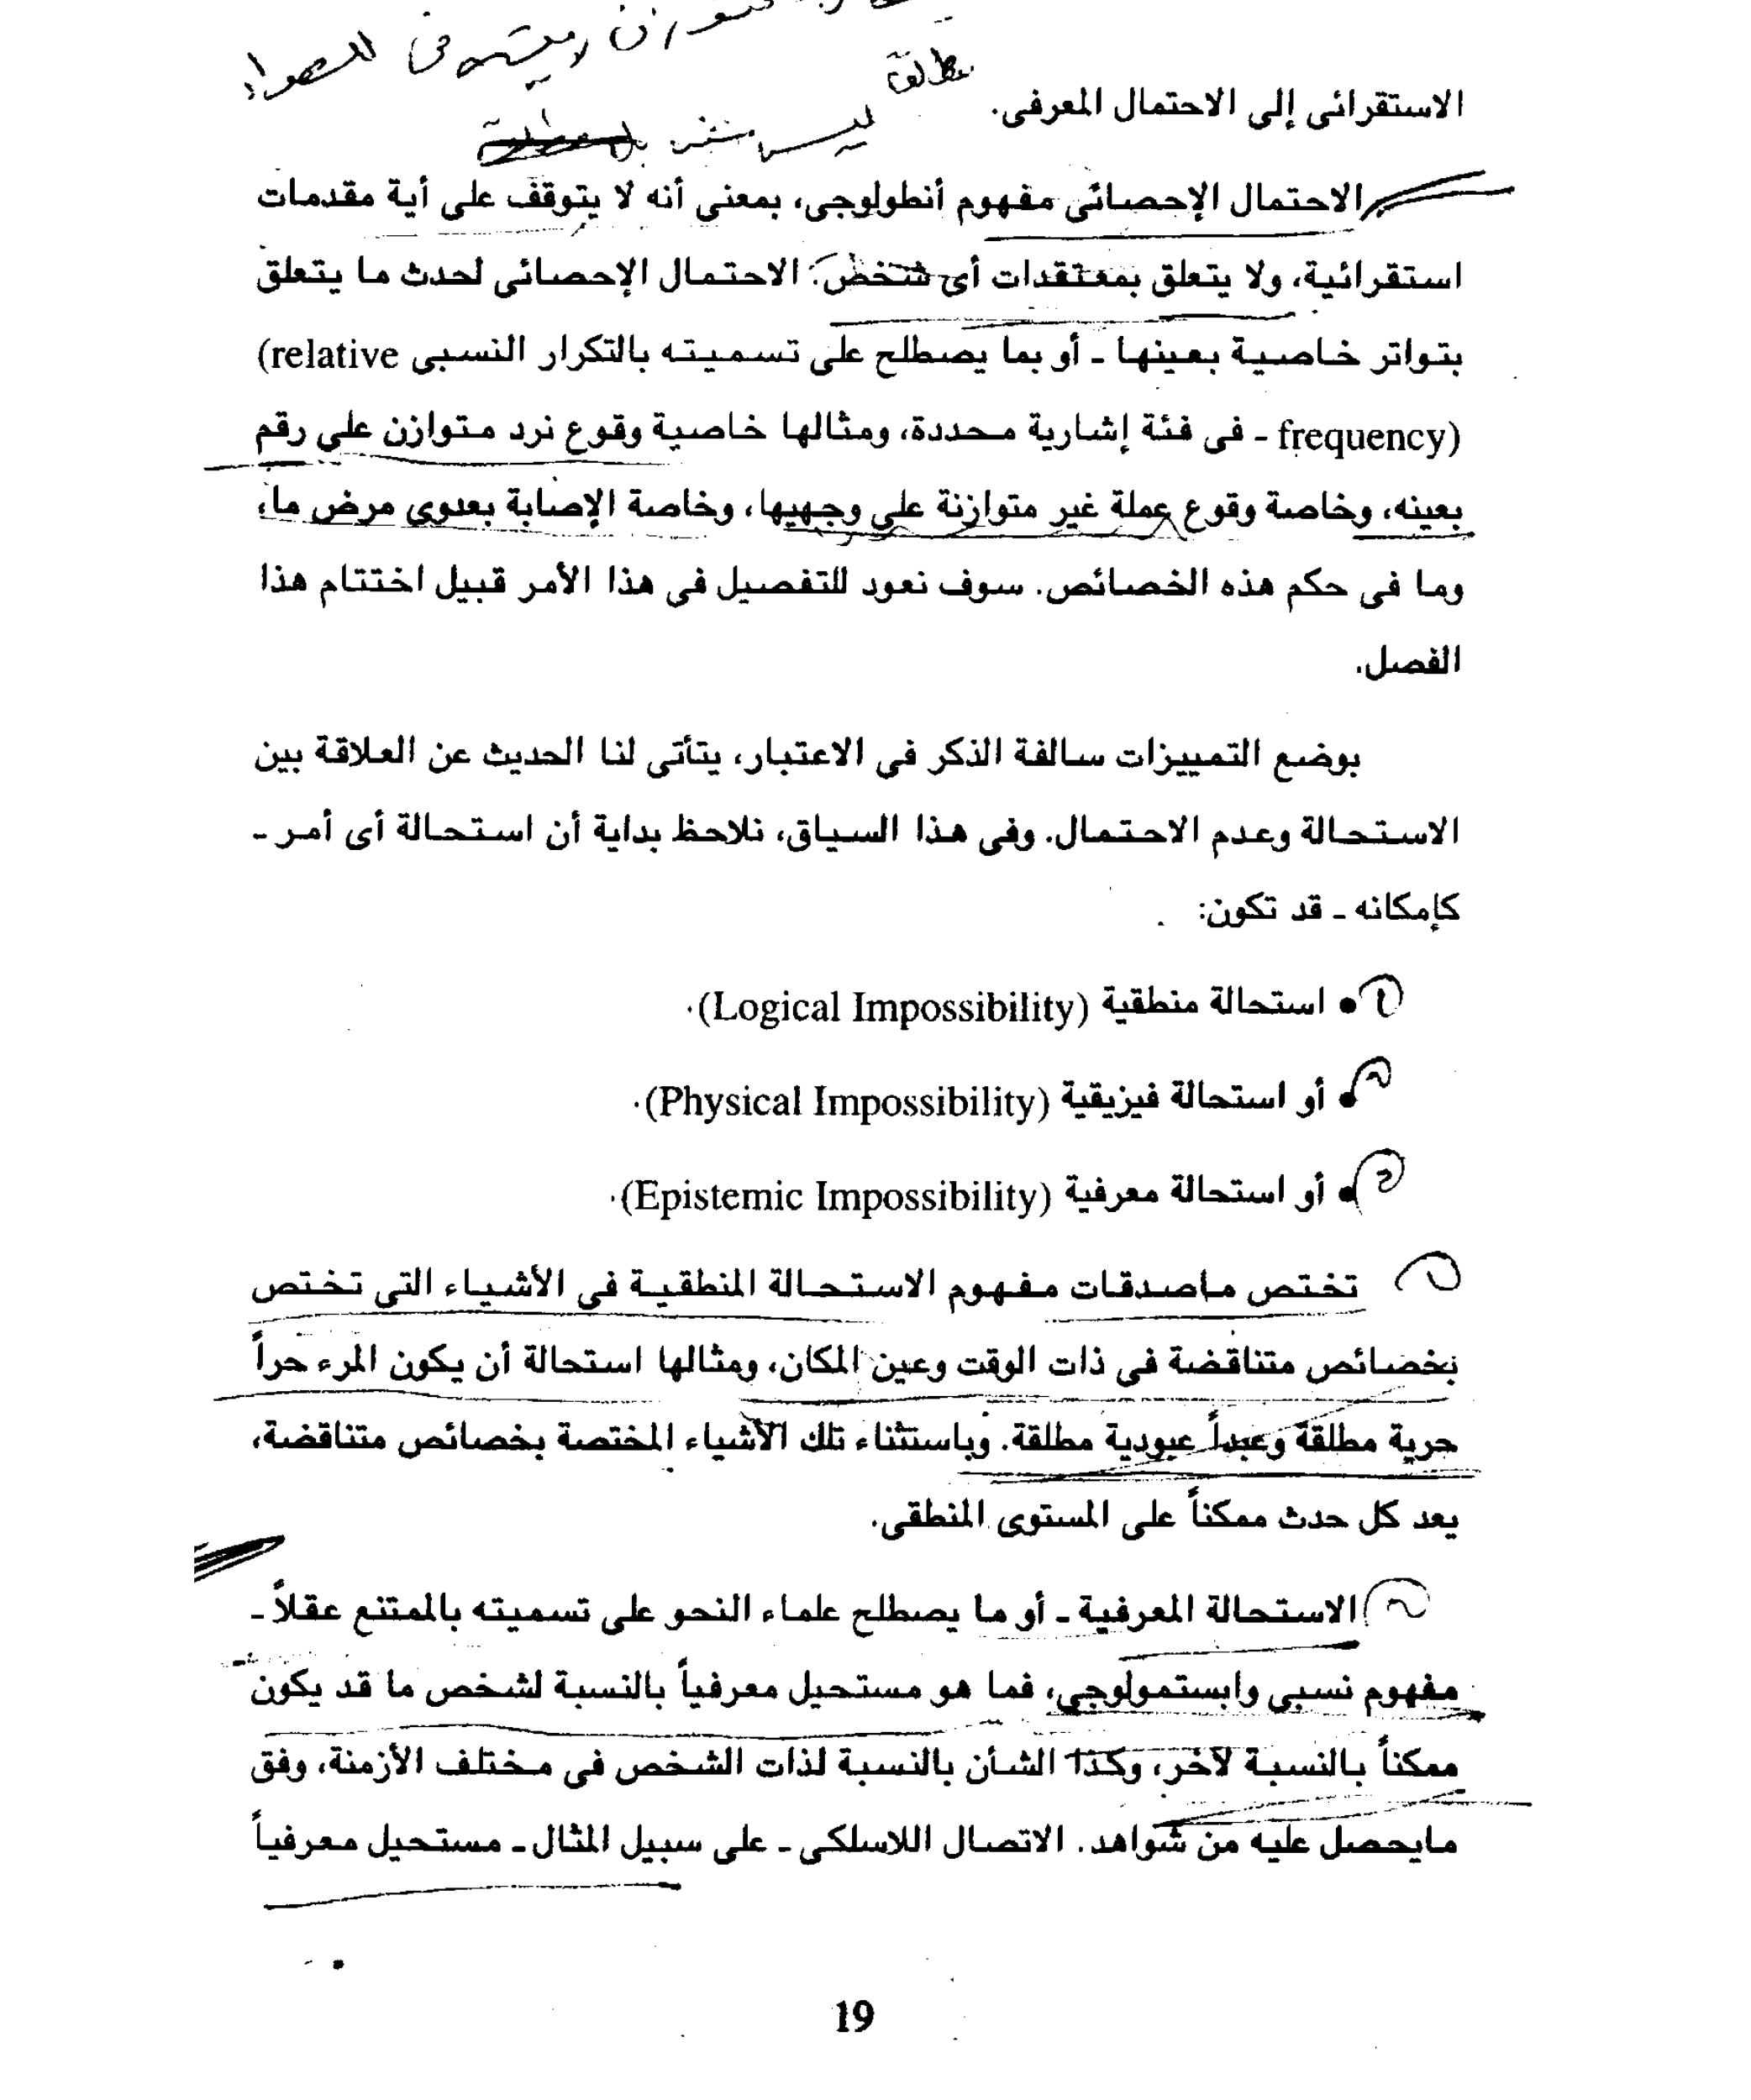 الاستقرائى إلى الاحتمال المعرفى.
الاحتمال الإحصائى مفهوم أنطولوجى، بمعنى أنه لا يتوقف على أية مقدمات
استقرائية، ولا يتعلق بمعتقدات أى شخص. الاحتمال الإحصائى لحدث ما يتعلق
بتواتر خاصية بعينها - أو بما يصطلح على تسميته بالتكرار النسبى (relative
frequency) - فى فئة إشارية محددة، ومثالها خاصية وقوع نرد متوازن على رقم
بعينه، وخاصة وقوع عملة غير متوازنة على وجهيها، وخاصة الإصابة بعدوى مرض ما،
وما فى حكم هذه الخصائص. سوف نعود للتفصيل فى هذا الأمر قبيل اختتام هذا
الفصل.
بوضع التمييزات سالفة الذكر فى الاعتبار، يتأتى لنا الحديث عن العلاقة بين
الاستحالة وعدم الاحتمال. وفى هذا السياق، نلاحظ بداية أن استحالة أى أمر -
كإمكانه - قد تكون:
١ • استحالة منطقية (Logical Impossibility).
• أو استحالة فيزيقية (Physical Impossibility).
• أو استحالة معرفية (Epistemic Impossibility).
تختص ماصدقات مفهوم الاستحالة المنطقية فى الأشياء التى تختص
بخصائص متناقضة فى ذات الوقت وعين المكان، ومثالها استحالة أن يكون المرء حراً
حرية مطلقة وعبداً عبودية مطلقة. وباستثناء تلك الأشياء المختصة بخصائص متناقضة،
يعد كل حدث ممكناً على المستوى المنطقى.
الاستحالة المعرفية - أو ما يصطلح علماء النحو على تسميته بالممتنع عقلاً -
مفهوم نسبى وابستمولوجى، فما هو مستحيل معرفياً بالنسبة لشخص ما قد يكون
ممكناً بالنسبة لآخر، وكذا الشأن بالنسبة لذات الشخص فى مختلف الأزمنة، وفق
مايحصل عليه من شواهد. الاتصال اللاسلكى - على سبيل المثال - مستحيل معرفياً
19